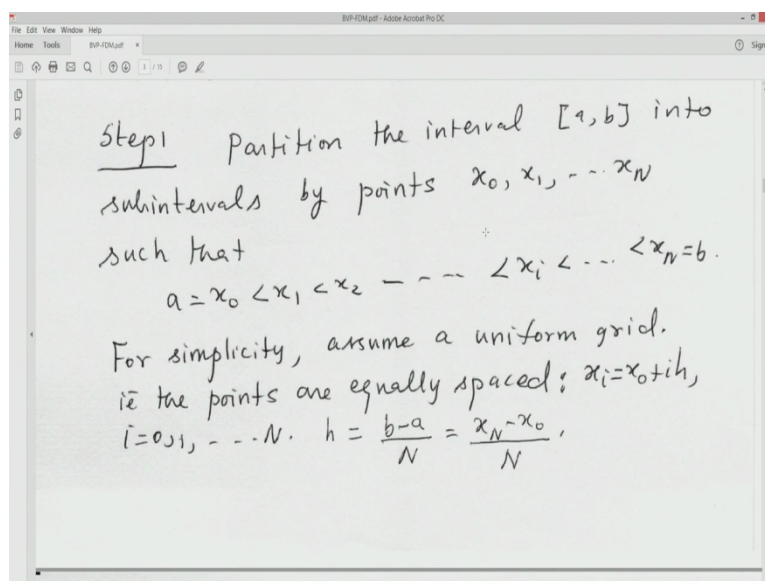 BVP-FDM.pdf - Adobe Acrobat Pro DC
File Edit View Window Help
Home Tools BVP-FDM.pdf × Sign
1 / 15
Step1 Partition the interval [a,b] into
subintervals by points x₀, x₁, -- xN
such that
a = x₀ < x₁ < x₂ - - -- < xᵢ < --- < xN = b.
For simplicity, assume a uniform grid.
ie the points are equally spaced: xᵢ = x₀ + ih,
i = 0,1, - - - N. h = (b-a)/N = (xN - x₀)/N.